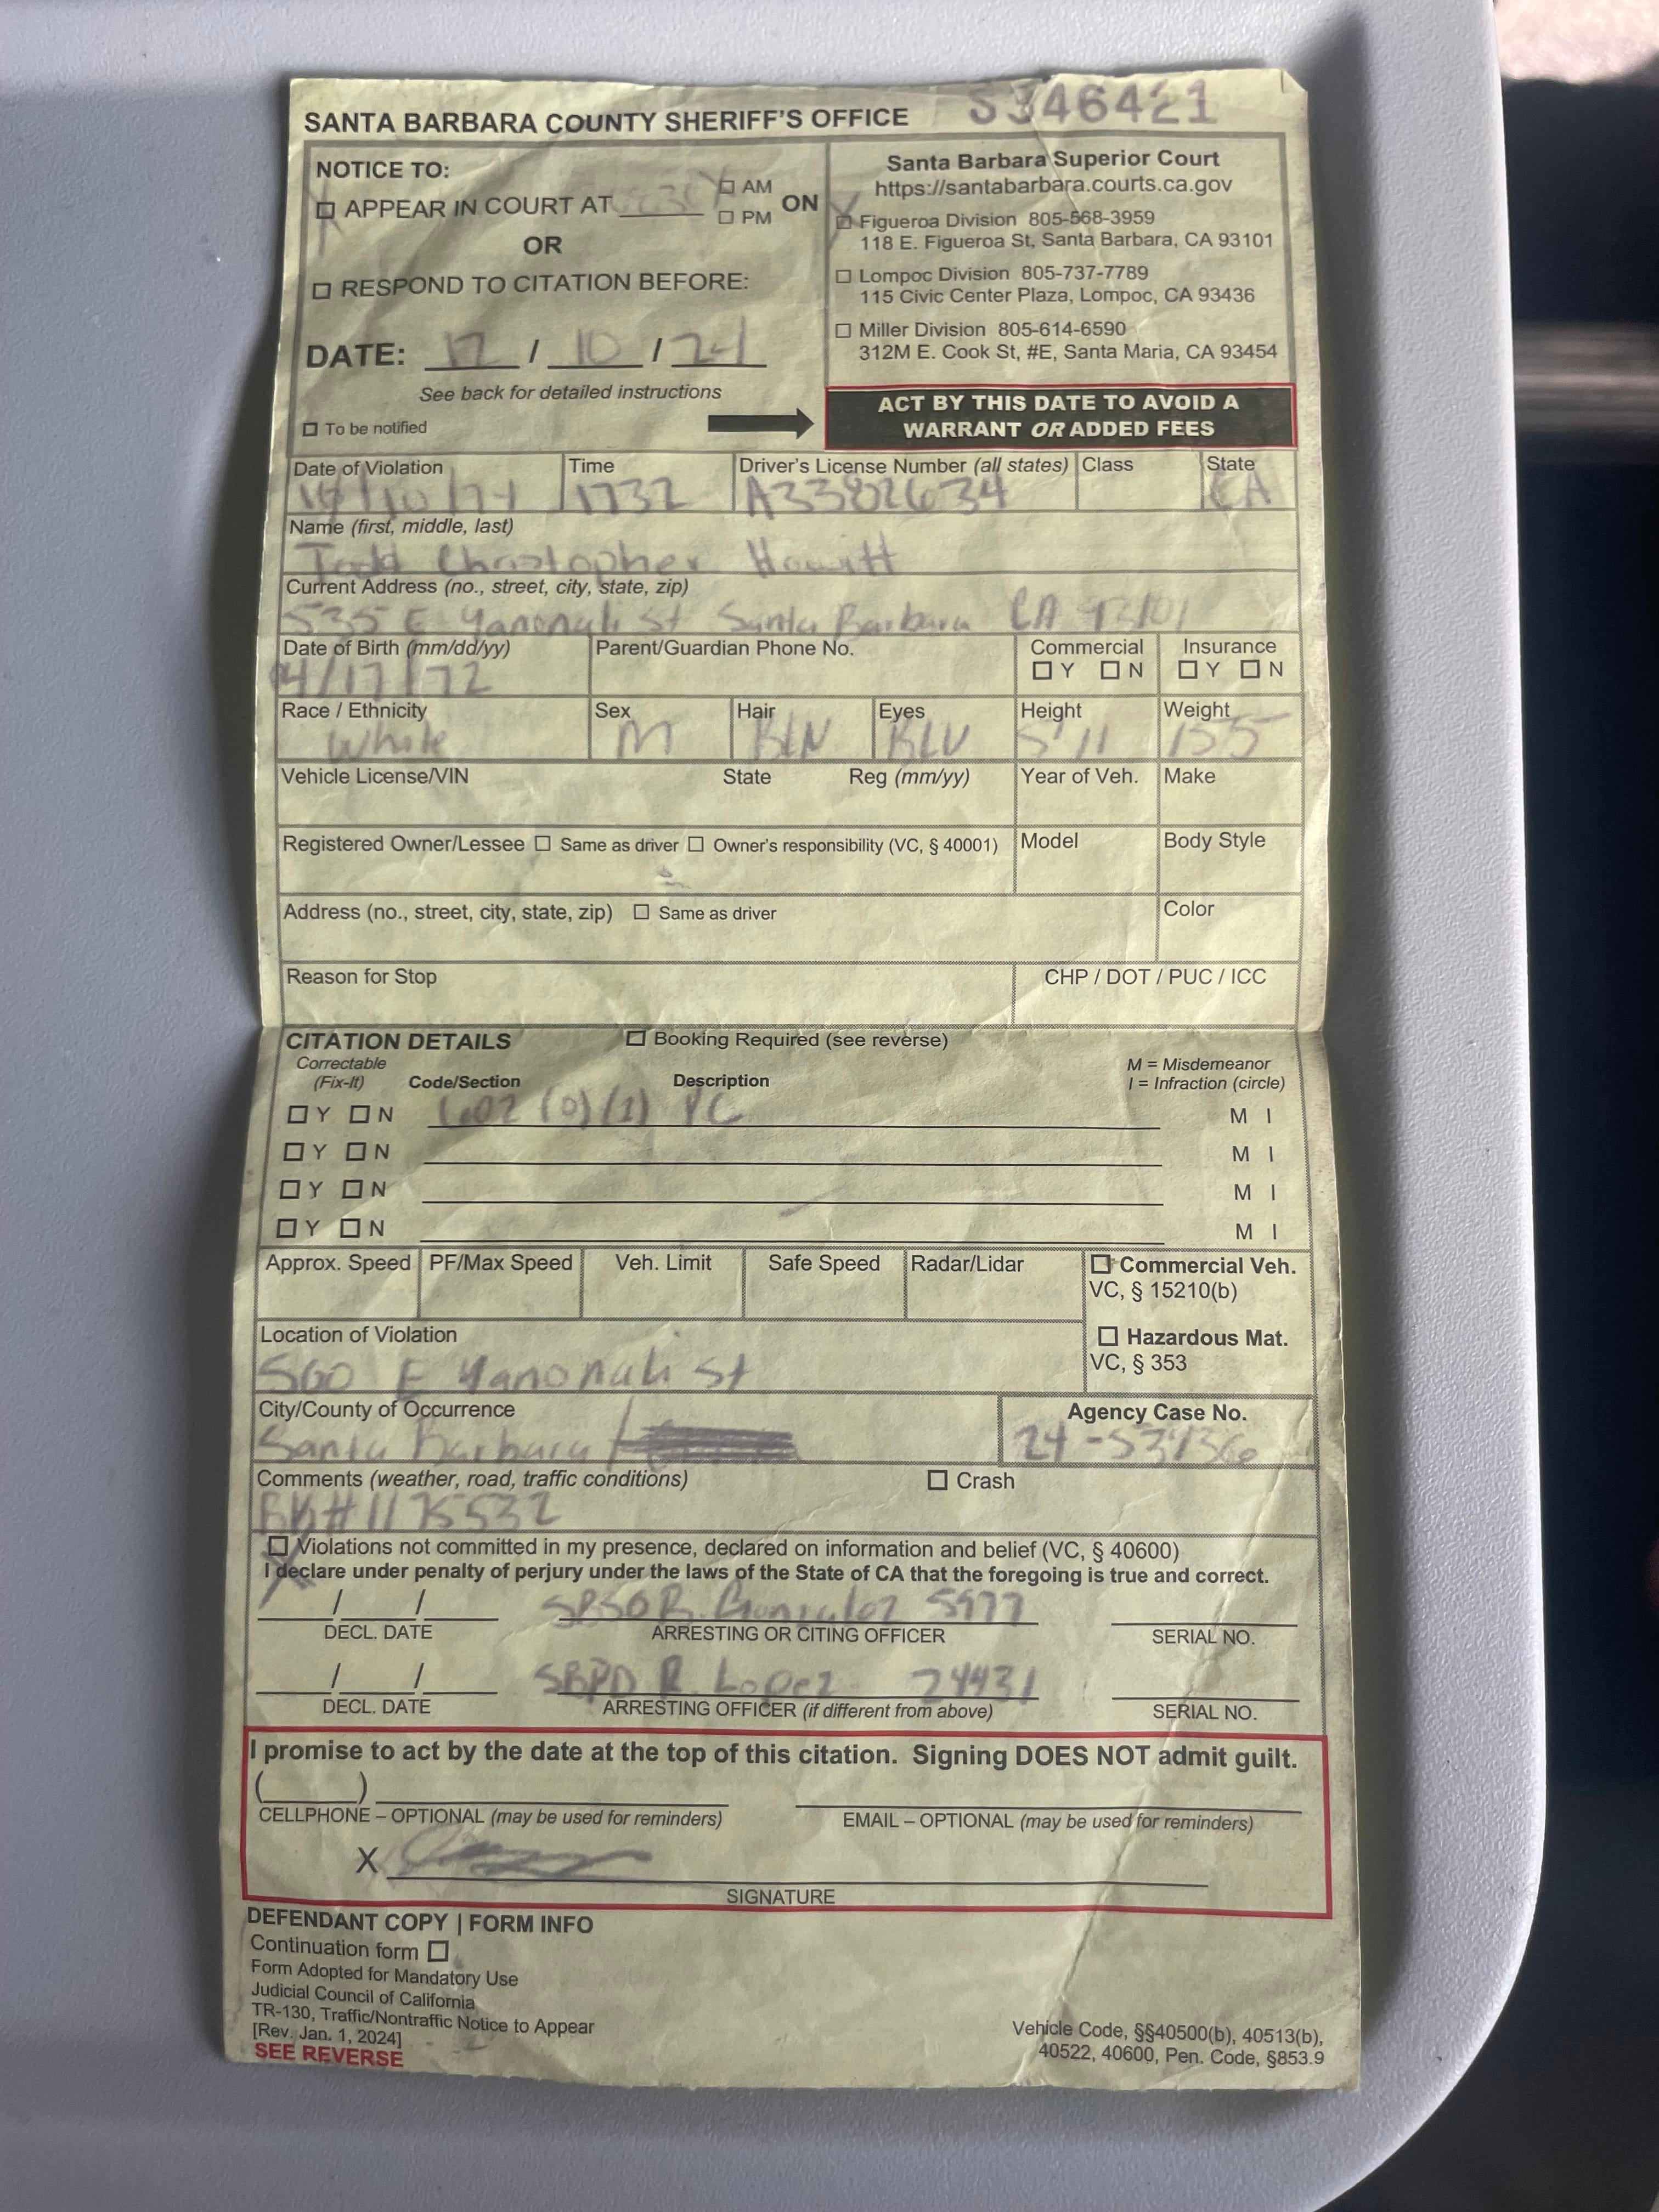 SANTA BARBARA COUNTY SHERIFF'S OFFICE S346421
NOTICE TO:
☐ APPEAR IN COURT AT ☐ AM ☐ PM ON
OR
☐ RESPOND TO CITATION BEFORE:
DATE: 12 / 10 / 24
See back for detailed instructions
☐ To be notified
Santa Barbara Superior Court
https://santabarbara.courts.ca.gov
☐ Figueroa Division 805-568-3959
118 E. Figueroa St, Santa Barbara, CA 93101
☐ Lompoc Division 805-737-7789
115 Civic Center Plaza, Lompoc, CA 93436
☐ Miller Division 805-614-6590
312M E. Cook St, #E, Santa Maria, CA 93454
ACT BY THIS DATE TO AVOID A
WARRANT OR ADDED FEES
Date of Violation Time Driver's License Number (all states) Class State
1732 A3382634 CA
Name (first, middle, last)
Todd Christopher
Current Address (no., street, city, state, zip)
535 E Yanonali St Santa Barbara CA 93101
Date of Birth (mm/dd/yy) Parent/Guardian Phone No. Commercial Insurance
☐ Y ☐ N ☐ Y ☐ N
4/17/72
Race / Ethnicity Sex Hair Eyes Height Weight
White M BLN BLU 5'11 155
Vehicle License/VIN State Reg (mm/yy) Year of Veh. Make
Registered Owner/Lessee ☐ Same as driver ☐ Owner's responsibility (VC, § 40001) Model Body Style
Address (no., street, city, state, zip) ☐ Same as driver Color
Reason for Stop CHP / DOT / PUC / ICC
CITATION DETAILS ☐ Booking Required (see reverse)
Correctable
(Fix-It) Code/Section Description
M = Misdemeanor
I = Infraction (circle)
☐ Y ☐ N 602 (o)(1) PC M I
☐ Y ☐ N M I
☐ Y ☐ N M I
☐ Y ☐ N M I
Approx. Speed PF/Max Speed Veh. Limit Safe Speed Radar/Lidar
☐ Commercial Veh.
VC, § 15210(b)
☐ Hazardous Mat.
VC, § 353
Location of Violation
560 E Yanonali St
City/County of Occurrence Agency Case No.
Santa Barbara /
Comments (weather, road, traffic conditions) ☐ Crash
BK# 1175532
☐ Violations not committed in my presence, declared on information and belief (VC, § 40600)
I declare under penalty of perjury under the laws of the State of CA that the foregoing is true and correct.
/ / SBSO R. Gonzalez 5977
DECL. DATE ARRESTING OR CITING OFFICER SERIAL NO.
/ / SBPD R. Lopez 24431
DECL. DATE ARRESTING OFFICER (if different from above) SERIAL NO.
I promise to act by the date at the top of this citation. Signing DOES NOT admit guilt.
( )
CELLPHONE – OPTIONAL (may be used for reminders) EMAIL – OPTIONAL (may be used for reminders)
X
SIGNATURE
DEFENDANT COPY | FORM INFO
Continuation form ☐
Form Adopted for Mandatory Use
Judicial Council of California
TR-130, Traffic/Nontraffic Notice to Appear
[Rev. Jan. 1, 2024]
SEE REVERSE
Vehicle Code, §§40500(b), 40513(b),
40522, 40600, Pen. Code, §853.9